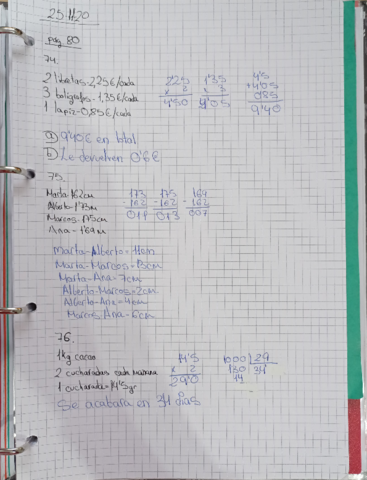 25-11-20
pág. 80
74.
2 libretas-2,25€/cada
3 bolígrafos-1,35€/cada
1 lapiz-0,85€/cada
2'25
x 2
4'50
1'35
x 3
4'05
4'5
+4'05
0'85
9'40
a) 9'40€ en total
b) Le devuelven 0'6€
75.
Marta-1,62cm
Alberto-1'73m
Marcos-175cm
Ana-1'69m
173
-162
011
175
-162
013
169
-162
007
Marta-Alberto=11cm
Marta-Marcos=13cm
Marta-Ana=7cm
Alberto-Marcos=2cm
Alberto-Ana=4cm
Marcos-Ana=6cm
76.
1kg cacao
2 cucharadas cada mañana
1 cucharada=14'5gr
14'5
x 2
29'0
1000 29
130 34
14
Se acabara en 34 dias